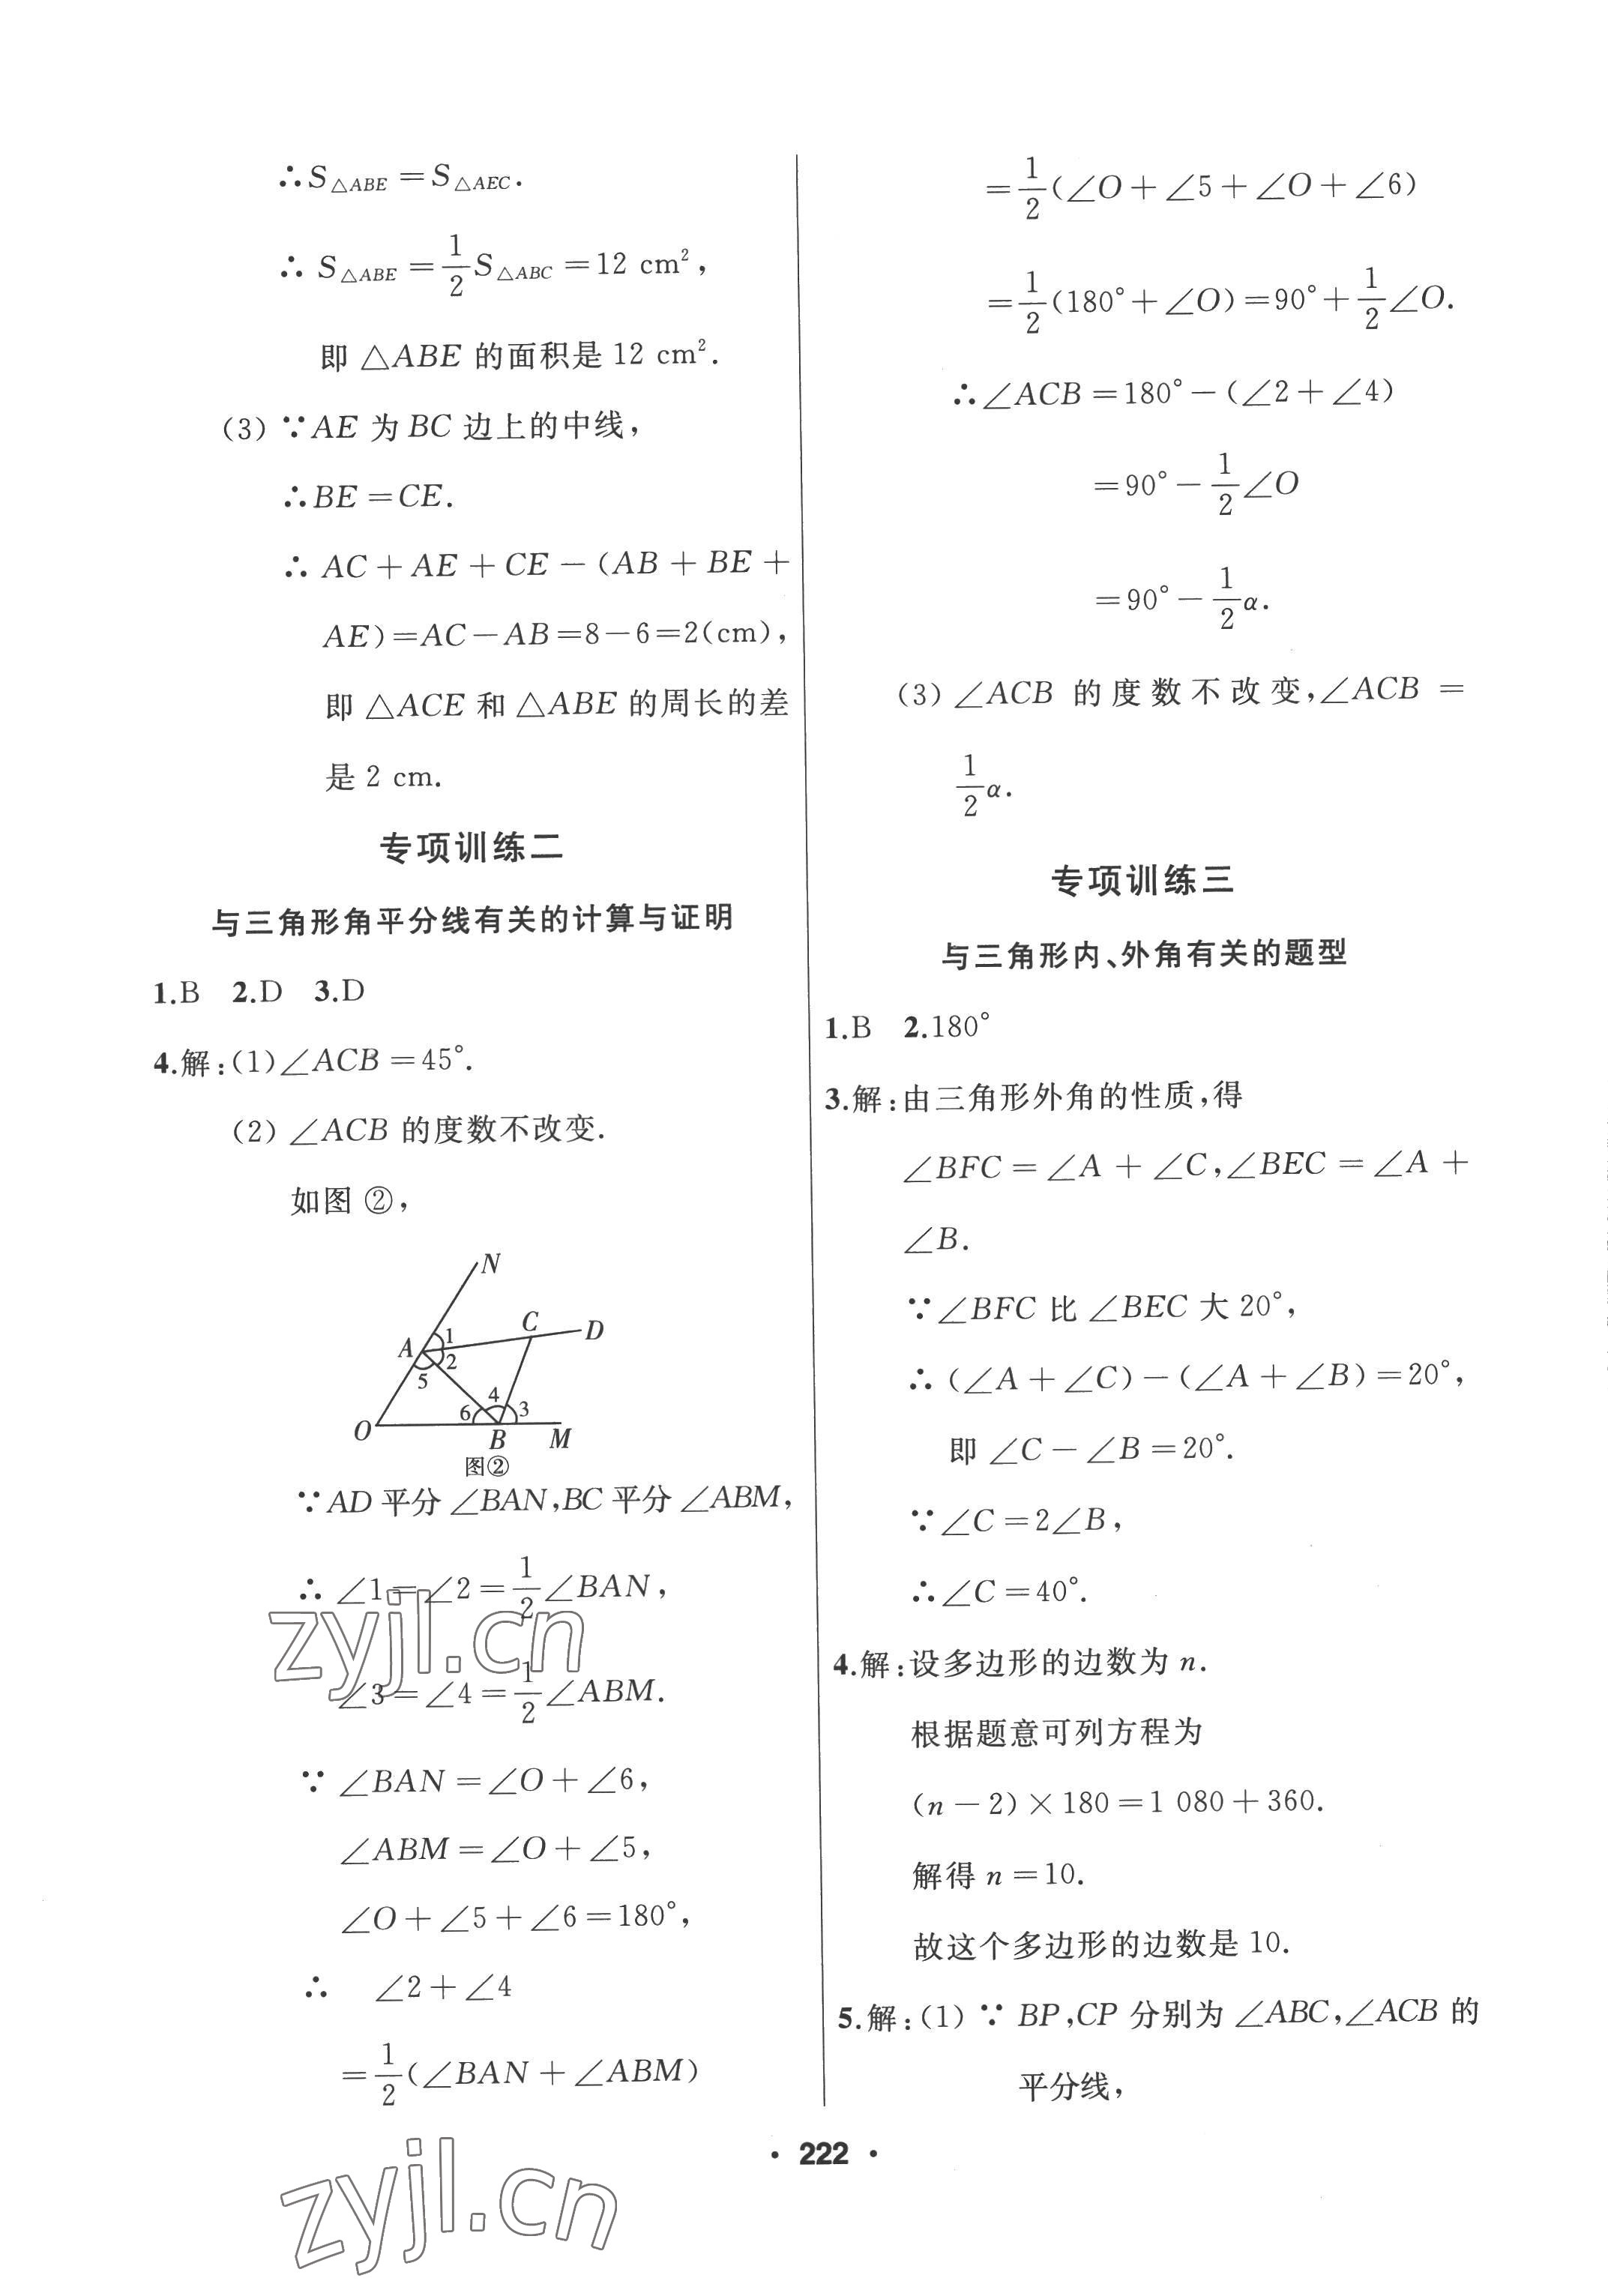 ∴S△ABE=S△AEC.
∴ S△ABE=1/2S△ABC=12 cm²,
即 △ABE 的面积是 12 cm².
(3) ∵AE 为 BC 边上的中线,
∴BE=CE.
∴ AC+AE+CE-(AB+BE+
AE)=AC-AB=8-6=2(cm),
即 △ACE 和 △ABE 的周长的差
是 2 cm.
专项训练二
与三角形角平分线有关的计算与证明
1.B 2.D 3.D
4.解:(1)∠ACB=45°.
(2) ∠ACB 的度数不改变.
如图 ②,
N
A 1 C D
2
5
4
O 6 3
B M
图②
∵AD 平分 ∠BAN,BC 平分 ∠ABM,
∴ ∠1=∠2=1/2∠BAN,
∠3=∠4=1/2∠ABM.
∵ ∠BAN=∠O+∠6,
∠ABM=∠O+∠5,
∠O+∠5+∠6=180°,
∴ ∠2+∠4
=1/2(∠BAN+∠ABM)
=1/2(∠O+∠5+∠O+∠6)
=1/2(180°+∠O)=90°+1/2∠O.
∴∠ACB=180°-(∠2+∠4)
=90°-1/2∠O
=90°-1/2α.
(3) ∠ACB 的度数不改变,∠ACB=
1/2α.
专项训练三
与三角形内、外角有关的题型
1.B 2.180°
3.解:由三角形外角的性质,得
∠BFC=∠A+∠C,∠BEC=∠A+
∠B.
∵∠BFC 比 ∠BEC 大 20°,
∴ (∠A+∠C)-(∠A+∠B)=20°,
即 ∠C-∠B=20°.
∵∠C=2∠B,
∴∠C=40°.
4.解:设多边形的边数为 n.
根据题意可列方程为
(n-2)×180=1 080+360.
解得 n=10.
故这个多边形的边数是 10.
5.解:(1) ∵ BP,CP 分别为 ∠ABC,∠ACB 的
平分线,
· 222 ·
zyjl.cn
zyjl.cn